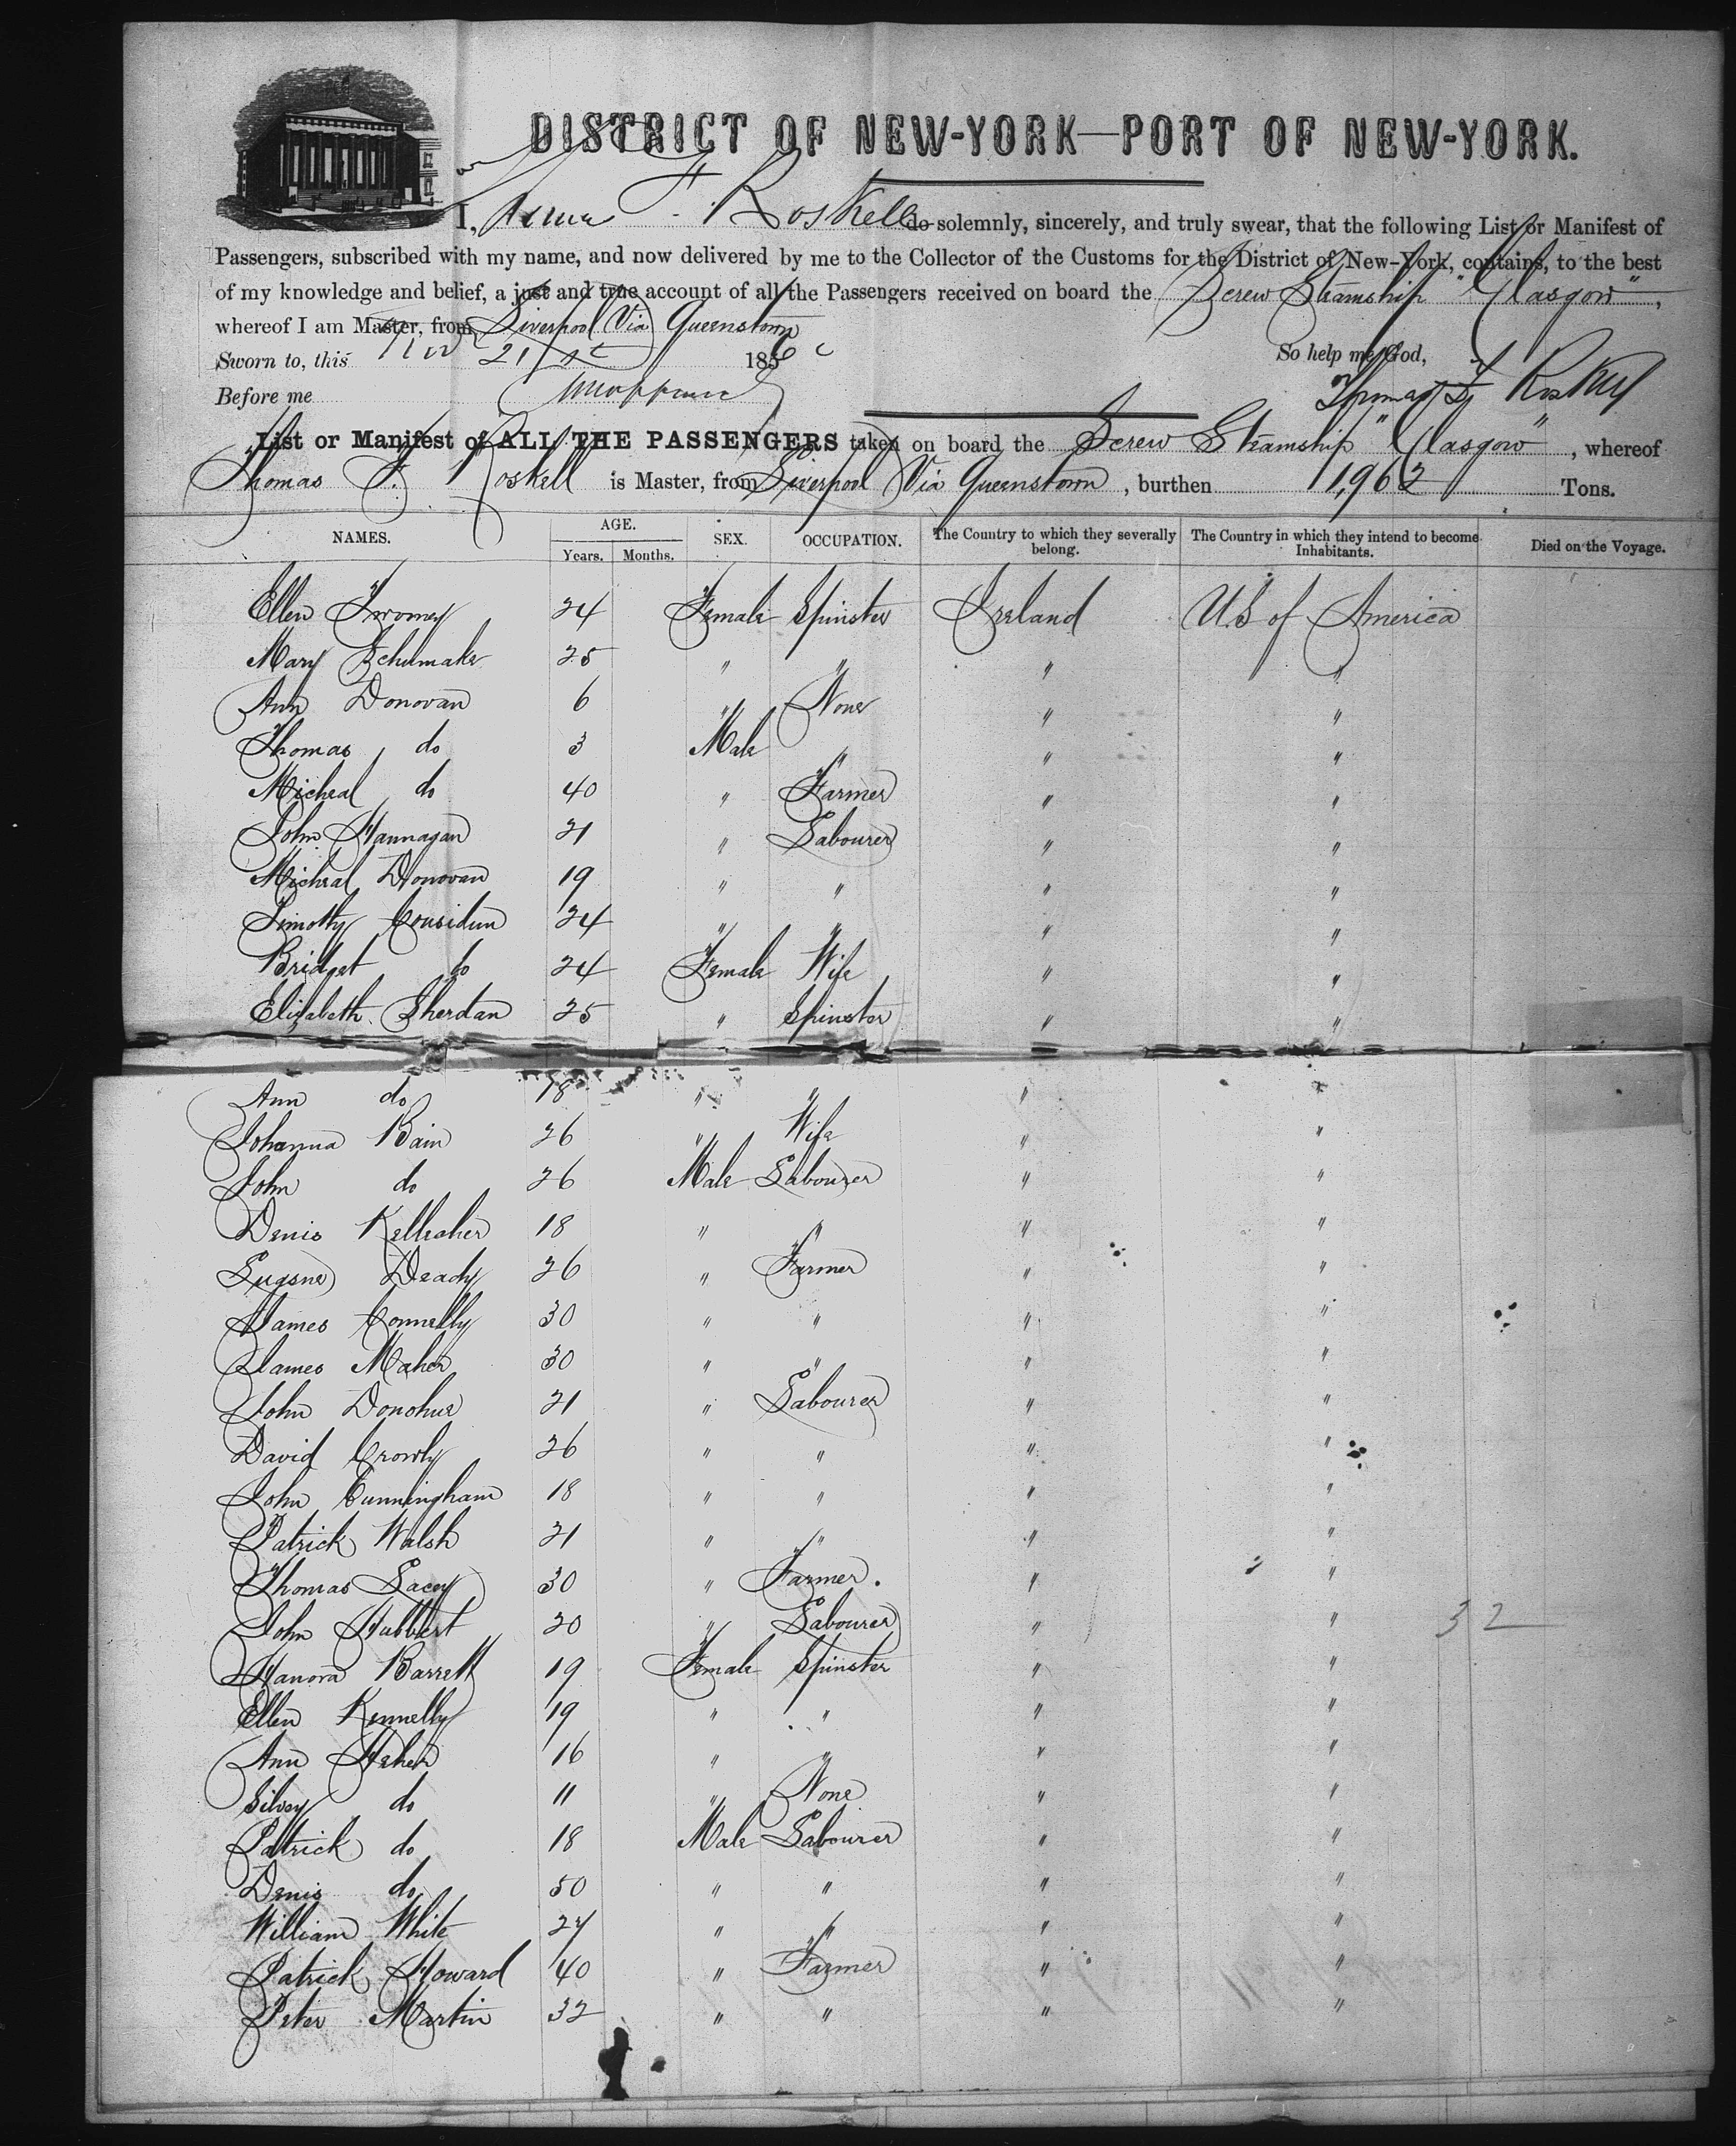 DISTRICT OF NEW-YORK—PORT OF NEW-YORK.
I, Thomas F. Roskell do solemnly, sincerely, and truly swear, that the following List or Manifest of
Passengers, subscribed with my name, and now delivered by me to the Collector of the Customs for the District of New-York, contains, to the best
of my knowledge and belief, a just and true account of all the Passengers received on board the Screw Steamship "Glasgow",
whereof I am Master, from Liverpool Via Queenstown
Sworn to, this 21st 1860 So help me God,
Before me Thomas F Roskell
List or Manifest of ALL THE PASSENGERS taken on board the Screw Steamship "Glasgow", whereof
Thomas F. Roskell is Master, from Liverpool Via Queenstown, burthen 1,962 Tons.
NAMES. AGE. SEX. OCCUPATION. The Country to which they severally belong. The Country in which they intend to become Inhabitants. Died on the Voyage.
Years. Months.
Ellen Twomey 24 Female Spinster Ireland U.S of America
Mary Schumaker 25 " " " "
Ann Donovan 6 " None " "
Thomas do 3 Male " " "
Micheal do 40 " Farmer " "
John Hannagan 21 " Labourer " "
Micheal Donovan 19 " " " "
Timothy Considun 24 " " " "
Bridget do 24 Female Wife " "
Elizabeth Sherdan 25 " Spinster " "
Ann do 18 " " " "
Johanna Bain 26 " Wife " "
John do 26 Male Labourer " "
Denis Kelleaher 18 " " " "
Eugene Deady 26 " Farmer " "
James Connelly 30 " " " "
James Maher 30 " " " "
John Donohue 21 " Labourer " "
David Crowly 26 " " " "
John Cunningham 18 " " " "
Patrick Walsh 21 " " " "
Thomas Lacey 30 " Farmer. " "
John Hubbert 20 " Labourer " " 32
Hanora Barrett 19 Female Spinster " "
Ellen Kennelly 19 " " " "
Ann Haher 16 " " " "
Silvey do 11 " None " "
Patrick do 18 Male Labourer " "
Denis do 50 " " " "
William White 24 " " " "
Patrick Howard 40 " Farmer " "
Peter Martin 32 " " " "